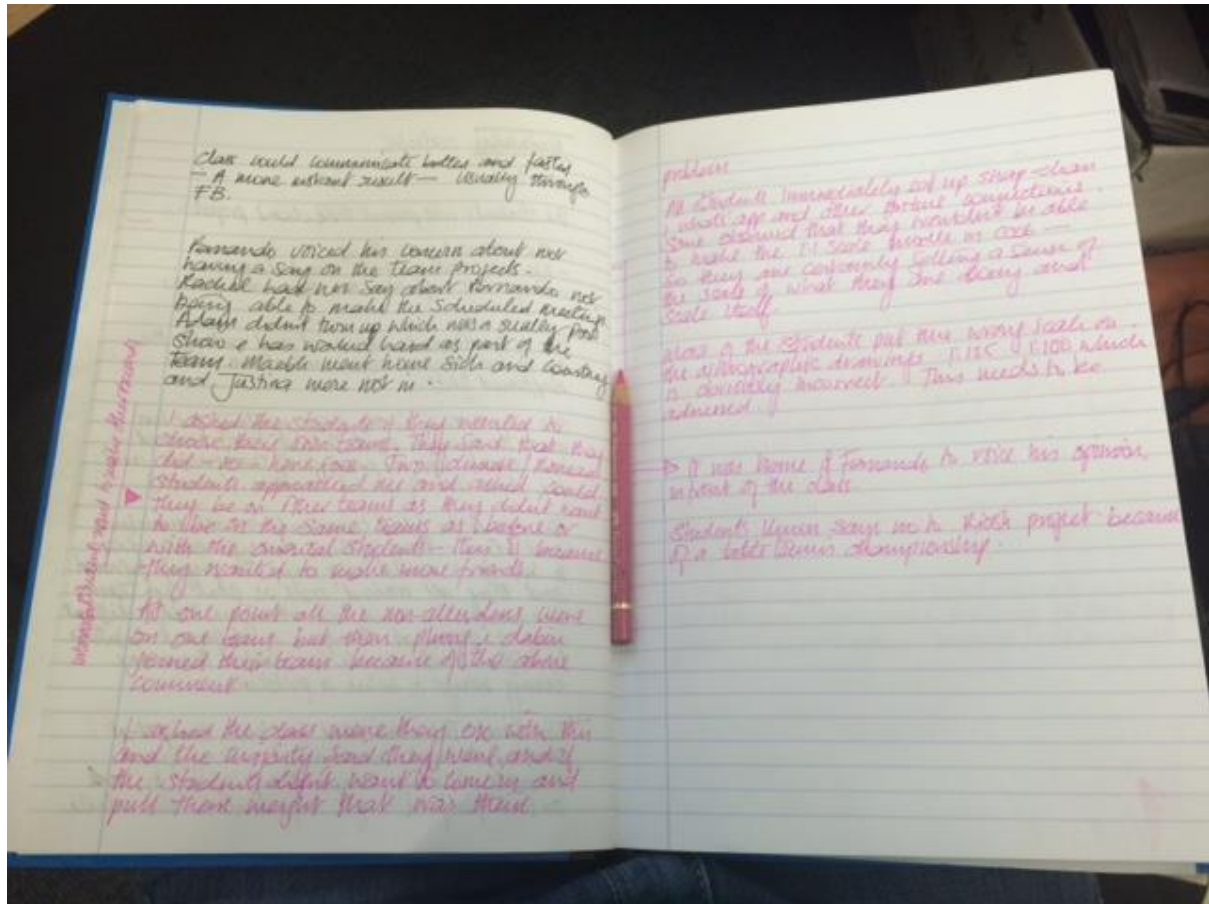 Class could communicate better and faster
– A more instant result – usually through
FB.
Fernando voiced his concern about not
having a say on the team projects.
Rachel had her say about Fernando not
being able to make the scheduled meeting.
Adam didn't turn up which was a really poor
show & has worked hard as part of the
team. went home sick and
and Justina were not in.
I asked the students if they wanted to
choose their own teams. They said that they
did
students approached me and asked could
they be on other teams as they didn't want
to be on the same teams as before or
with the students – this is because
they wanted to make more friends.
At one point all the non-attenders were
on one team but then
joined their team because of the above
comment.
I asked the class were they ok with this
and the majority said they were, and if
the students didn't want to come in and
pull there weight that was their
International Student want to make there friends
problem
All students immediately set up
whats app and other connections.
Some observed that they wouldn't be able
to make the 1:1 scale –
So they are certainly getting a sense of
the scale of what they are doing and
scale itself.
of the students put the wrong scale on
the orthographic drawings 1:125 1:100 which
is obviously incorrect. This needs to be
It was of Fernando to voice his opinion
infront of the class
Students Union says no to Kiosk project because
of a table tennis championship.